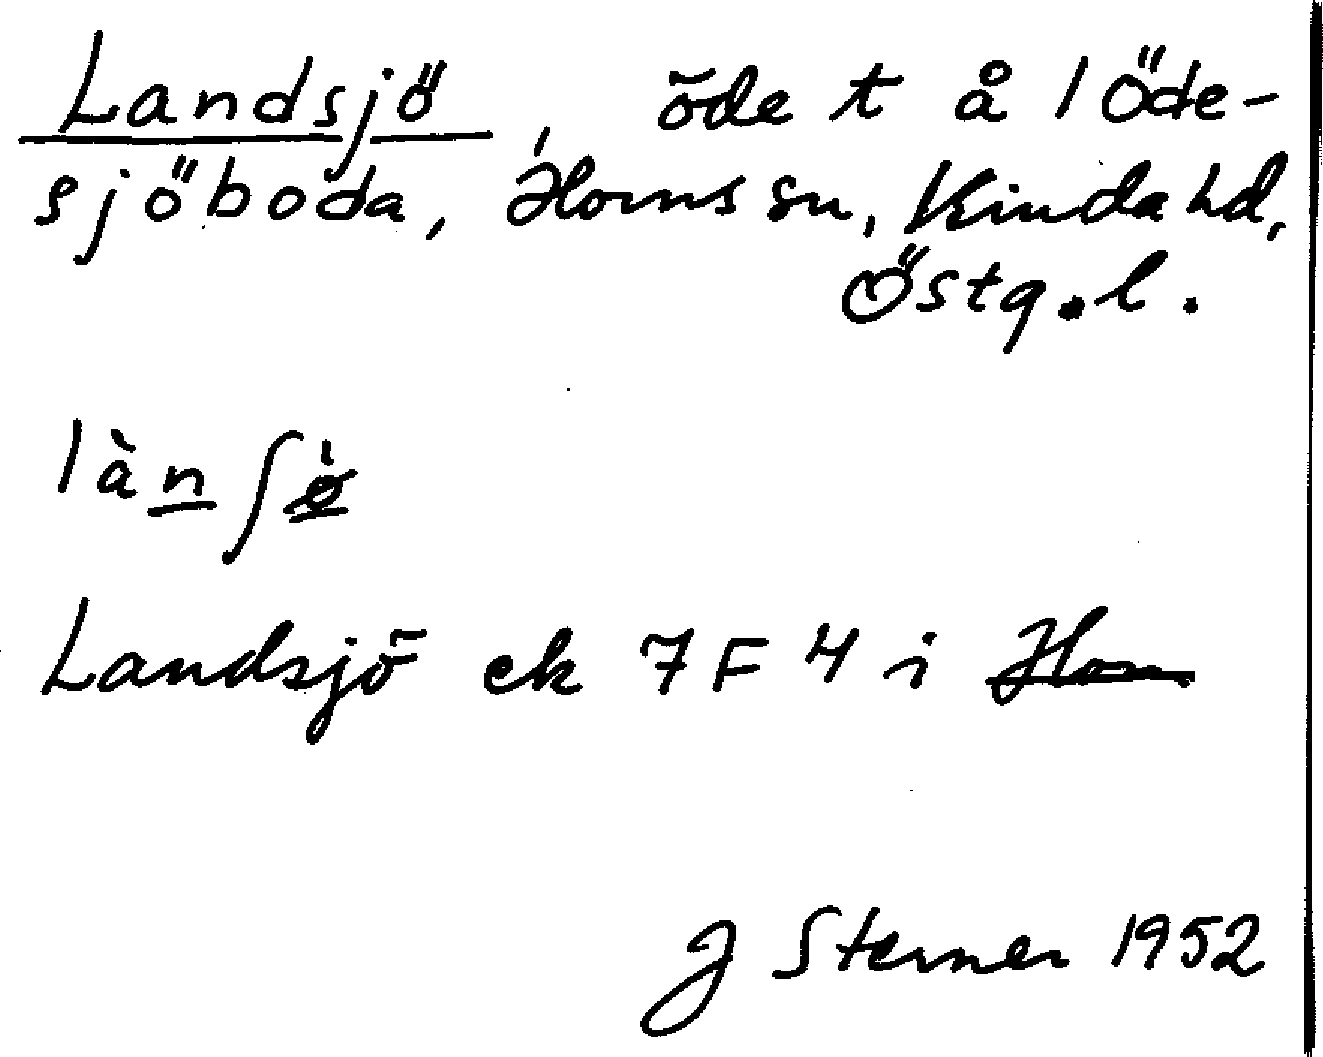 Landsjö, öde t å 1 Öde-
sjöboda, Horns sn, Kinda hd,
Östg.l.
làn̲ʃø̲̀
Landsjö ek 7F4 i Horn
J Sterner 1952